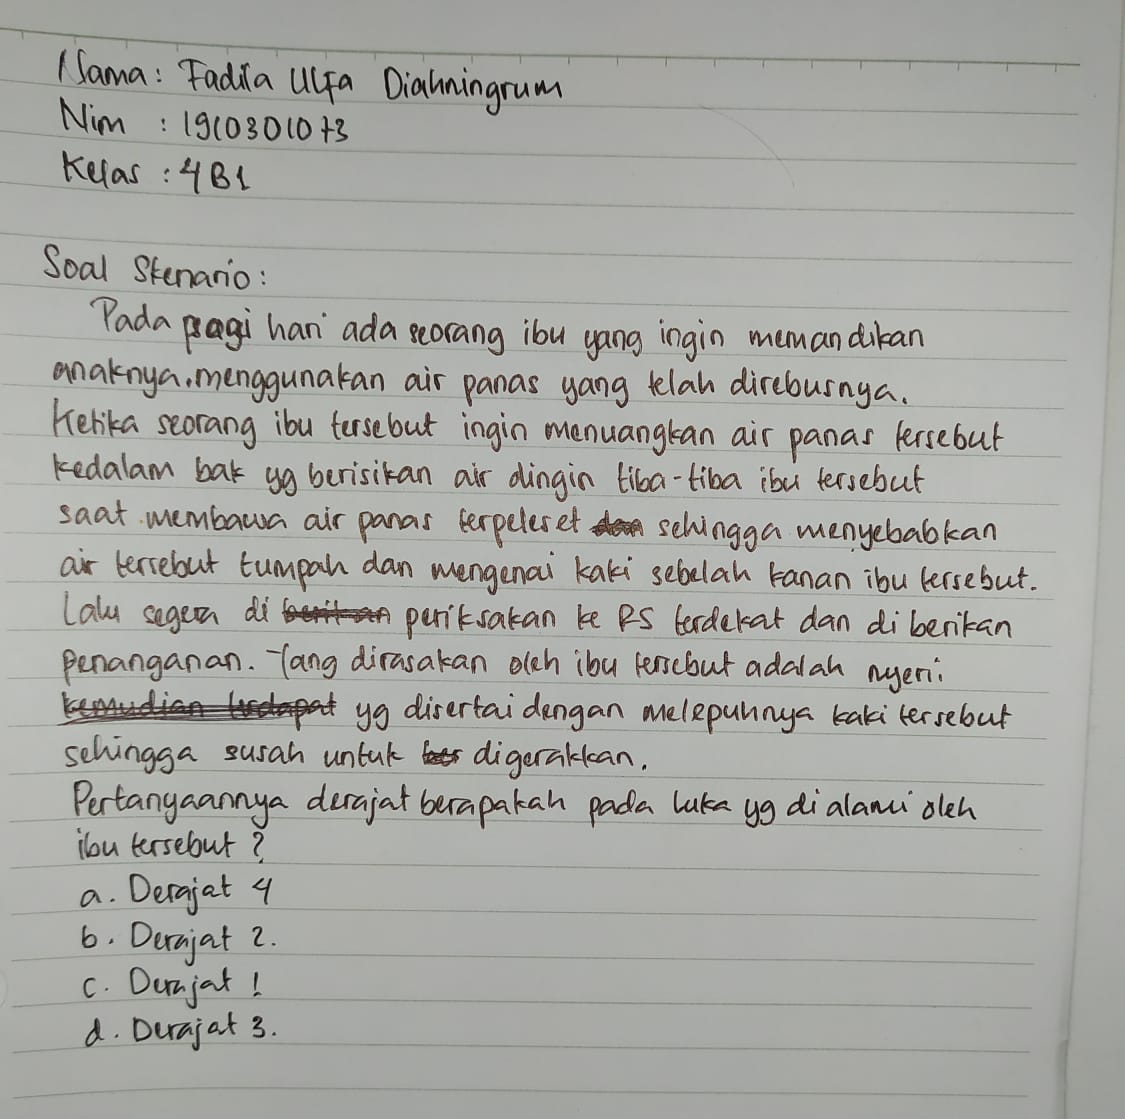 Nama : Fadila Ulfa Diahningrum
Nim : 1910301073
Kelas : 4B1
Soal Skenario :
Pada pagi hari ada seorang ibu yang ingin memandikan
anaknya.menggunakan air panas yang telah direbusnya.
Ketika seorang ibu tersebut ingin menuangkan air panas tersebut
kedalam bak yg berisikan air dingin tiba-tiba ibu tersebut
saat membawa air panas terpeleset dan sehingga menyebabkan
air tersebut tumpah dan mengenai kaki sebelah kanan ibu tersebut.
Lalu segera di berikan periksakan ke RS terdekat dan di berikan
penanganan. Yang dirasakan oleh ibu tersebut adalah nyeri.
kemudian terdapat yg disertai dengan melepuhnya kaki tersebut
sehingga susah untuk ber digerakkan.
Pertanyaannya derajat berapakah pada luka yg di alami oleh
ibu tersebut ?
a. Derajat 4
b. Derajat 2.
c. Derajat 1
d. Derajat 3.